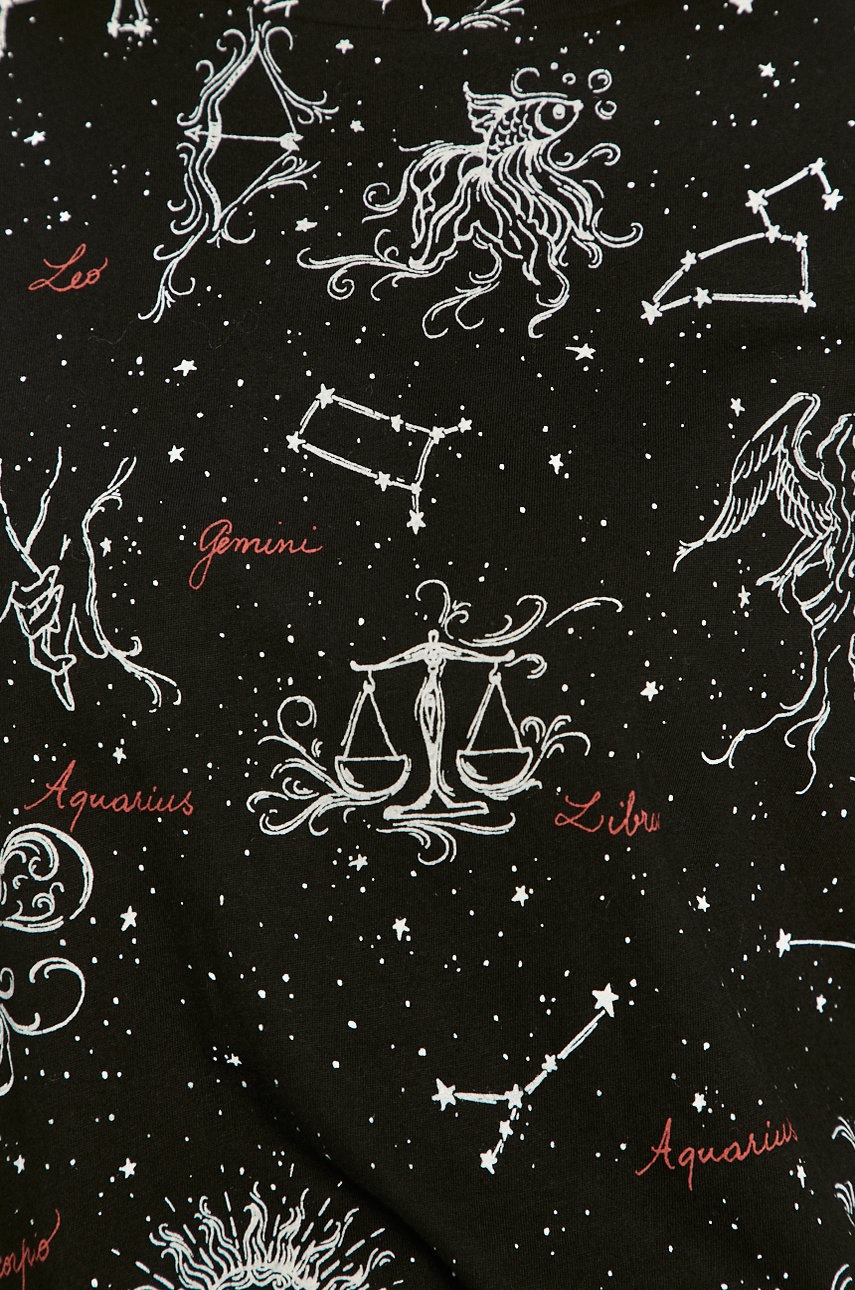 Leo
Gemini
Aquarius
Libra
Aquarius
corpio